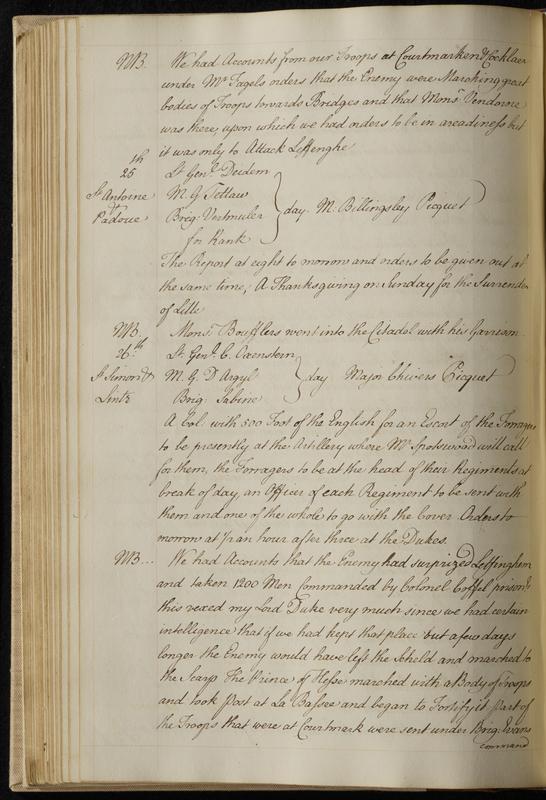 NB. We had Accounts from our Troops at Courtmarken & Cocklaer
under Mr Fagels orders that the Enemy were Marching great
bodies of Troops towards Bridges and that Monsr Vendome
was there, upon which we had orders to be in areadiness but
it was only to Attack Leffenghe
25th Lt Genl. Deidem
St Antoine M. G Tettau
de Padoue Brig: Vertmuler day M. Billingsley Picquet
for Rank
The Report at eight to morrow and orders to be given out at
the same time, A Thanksgiving on Sunday for the Surrender
of Lille
NB. Monsr. Boufflers went into the Citadel with his Garrison
26th. Lt Genl. C. Oxenstern
St Simon & M. G. D'Argyl day Major Chivers Picquet
Brig: Sabine
A Col: with 500 Foot of the English for an Escort of the Forragers
to be presently at the Artillery where Mr. Spotswood will call
for them, the Forragers to be at the head of their Regiments at
break of day, an Officer of each Regiment to be sent with
them and one of the whole to go with the Cover. Orders to
morrow at ½ an hour after three at the Dukes.
NB... We had Accounts that the Enemy had surprized Leffinghem
and taken 1200 Men Commanded by Colonel prisonrs
this vexed my Lord Duke very much since we had certain
intelligence that if we had kept that place but a few days
longer the Enemy would have left the Scheld and marched to
the Scarp The Prince of Hesse marched with a Body of Troops
and took Post at La Bassee and began to Fortify it part of
the Troops that were at Courtmark were sent under Brig: Evans
command